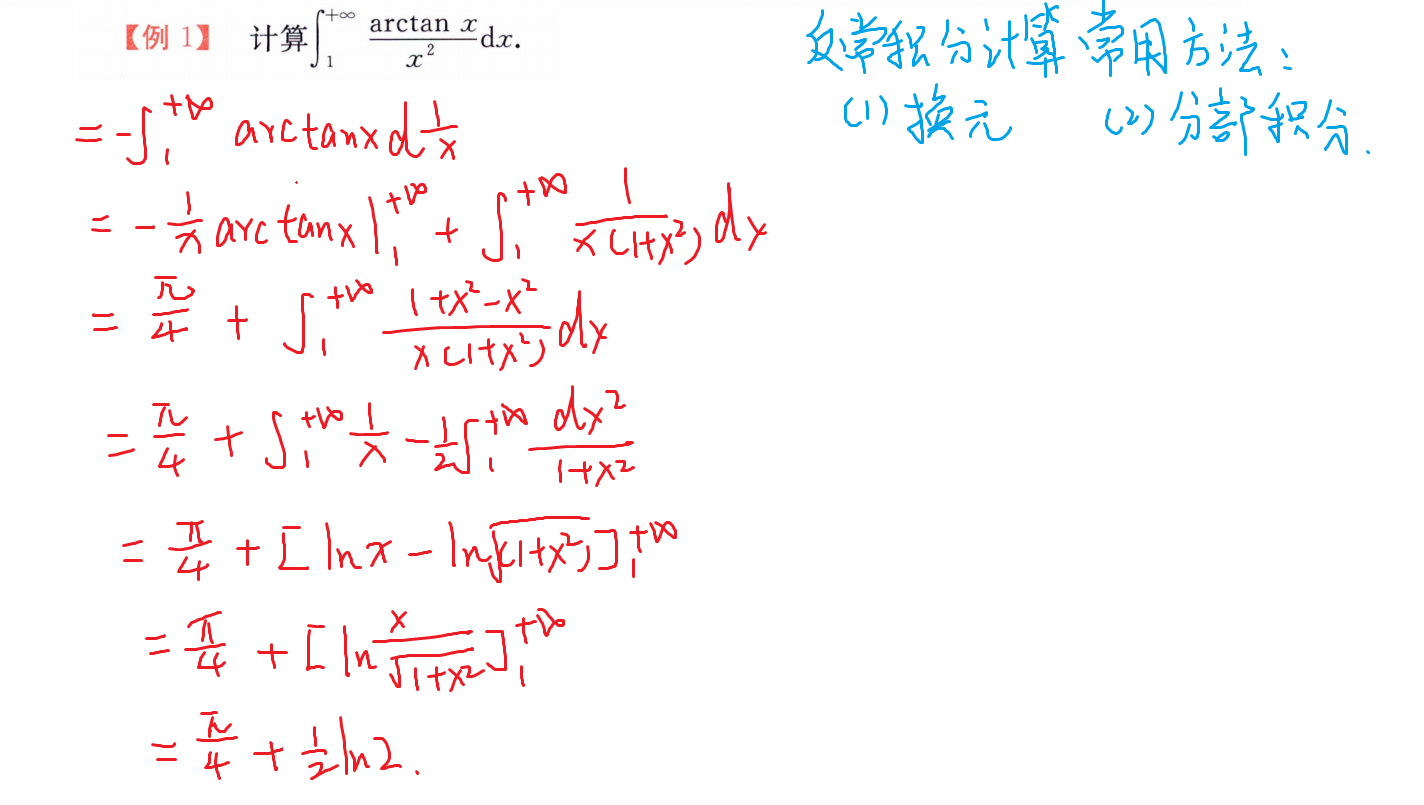 【例 1】 计算∫₁^{+∞} \frac{arctan x}{x²}dx.
反常积分计算常用方法：
(1) 换元 (2) 分部积分.
= -∫₁^{+∞} arctanx d\frac{1}{x}
= -\frac{1}{x} arctanx |₁^{+∞} + ∫₁^{+∞} \frac{1}{x(1+x²)} dx
= \frac{π}{4} + ∫₁^{+∞} \frac{1+x²-x²}{x(1+x²)} dx
= \frac{π}{4} + ∫₁^{+∞} \frac{1}{x} - \frac{1}{2}∫₁^{+∞} \frac{dx²}{1+x²}
= \frac{π}{4} + [lnx - ln\sqrt{(1+x²)}]₁^{+∞}
= \frac{π}{4} + [ln\frac{x}{\sqrt{1+x²}}]₁^{+∞}
= \frac{π}{4} + \frac{1}{2}ln2.